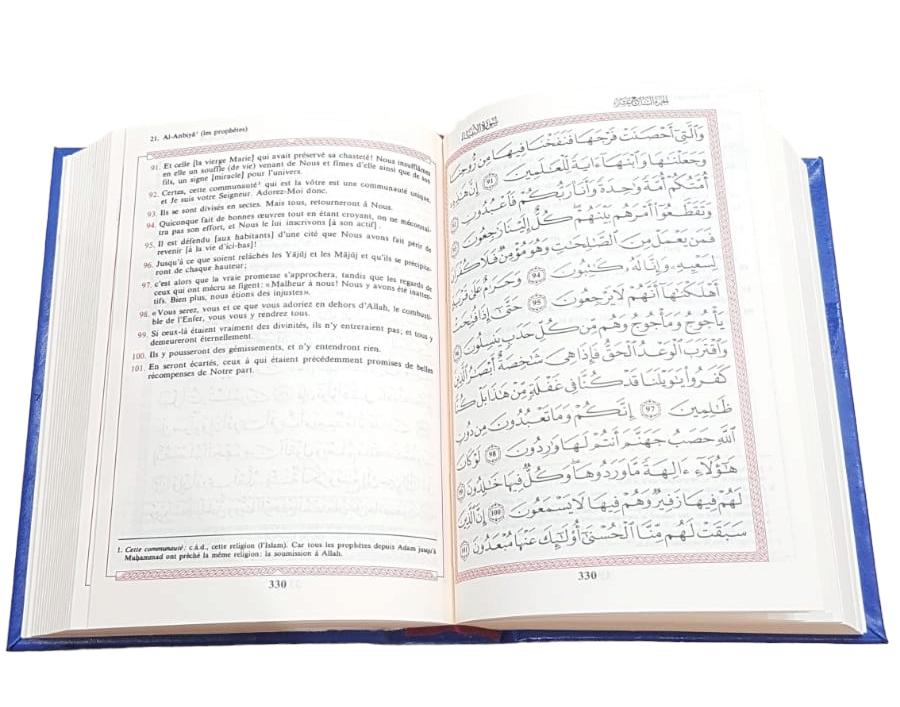 21. Al-Anbiyâ' (les prophètes)
91. Et celle [la vierge Marie] qui avait préservé sa chasteté! Nous insufflâmes
en elle un souffle (de vie) venant de Nous et fîmes d'elle ainsi que de son
fils, un signe [miracle] pour l'univers.
92. Certes, cette communauté¹ qui est la vôtre est une communauté unique,
et Je suis votre Seigneur. Adorez-Moi donc.
93. Ils se sont divisés en sectes. Mais tous, retourneront à Nous.
94. Quiconque fait de bonnes œuvres tout en étant croyant, on ne méconnaî-
tra pas son effort, et Nous le lui inscrivons [à son actif].
95. Il est défendu [aux habitants] d'une cité que Nous avons fait périr de
revenir [à la vie d'ici-bas]!
96. Jusqu'à ce que soient relâchés les Yâjûj et les Mâjûj et qu'ils se précipite-
ront de chaque hauteur;
97. c'est alors que la vraie promesse s'approchera, tandis que les regards de
ceux qui ont mécru se figent: «Malheur à nous! Nous y avons été inatten-
tifs. Bien plus, nous étions des injustes».
98. «Vous serez, vous et ce que vous adoriez en dehors d'Allah, le combusti-
ble de l'Enfer, vous vous y rendrez tous.
99. Si ceux-là étaient vraiment des divinités, ils n'y entreraient pas; et tous y
demeureront éternellement.
100. Ils y pousseront des gémissements, et n'y entendront rien.
101. En seront écartés, ceux à qui étaient précédemment promises de belles
récompenses de Notre part.
1. Cette communauté: c.à.d., cette religion (l'Islam). Car tous les prophètes depuis Adam jusqu'à
Muḥammad ont prêché la même religion; la soumission à Allah.
330
الجزء السابع عشر
سورة الأنبياء
وَٱلَّتِىٓ أَحْصَنَتْ فَرْجَهَا فَنَفَخْنَا فِيهَا مِن رُّوحِنَا
وَجَعَلْنَٰهَا وَٱبْنَهَآ ءَايَةً لِّلْعَٰلَمِينَ 91 إِنَّ هَٰذِهِۦٓ
أُمَّتُكُمْ أُمَّةً وَٰحِدَةً وَأَنَا۠ رَبُّكُمْ فَٱعْبُدُونِ
وَتَقَطَّعُوٓا۟ أَمْرَهُم بَيْنَهُمْ ۖ كُلٌّ إِلَيْنَا رَٰجِعُونَ
فَمَن يَعْمَلْ مِنَ ٱلصَّٰلِحَٰتِ وَهُوَ مُؤْمِنٌ فَلَا كُفْرَانَ
لِسَعْيِهِۦ وَإِنَّا لَهُۥ كَٰتِبُونَ 94 وَحَرَٰمٌ عَلَىٰ قَرْيَةٍ
أَهْلَكْنَٰهَآ أَنَّهُمْ لَا يَرْجِعُونَ 95 حَتَّىٰٓ إِذَا فُتِحَتْ
يَأْجُوجُ وَمَأْجُوجُ وَهُم مِّن كُلِّ حَدَبٍ يَنسِلُونَ
وَٱقْتَرَبَ ٱلْوَعْدُ ٱلْحَقُّ فَإِذَا هِىَ شَٰخِصَةٌ أَبْصَٰرُ ٱلَّذِينَ
كَفَرُوا۟ يَٰوَيْلَنَا قَدْ كُنَّا فِى غَفْلَةٍ مِّنْ هَٰذَا بَلْ كُنَّا
ظَٰلِمِينَ 97 إِنَّكُمْ وَمَا تَعْبُدُونَ مِن دُونِ
ٱللَّهِ حَصَبُ جَهَنَّمَ أَنتُمْ لَهَا وَٰرِدُونَ 98 لَوْ كَانَ
هَٰٓؤُلَآءِ ءَالِهَةً مَّا وَرَدُوهَا ۖ وَكُلٌّ فِيهَا خَٰلِدُونَ
لَهُمْ فِيهَا زَفِيرٌ وَهُمْ فِيهَا لَا يَسْمَعُونَ 100 إِنَّ ٱلَّذِينَ
سَبَقَتْ لَهُم مِّنَّا ٱلْحُسْنَىٰٓ أُو۟لَٰٓئِكَ عَنْهَا مُبْعَدُونَ
330